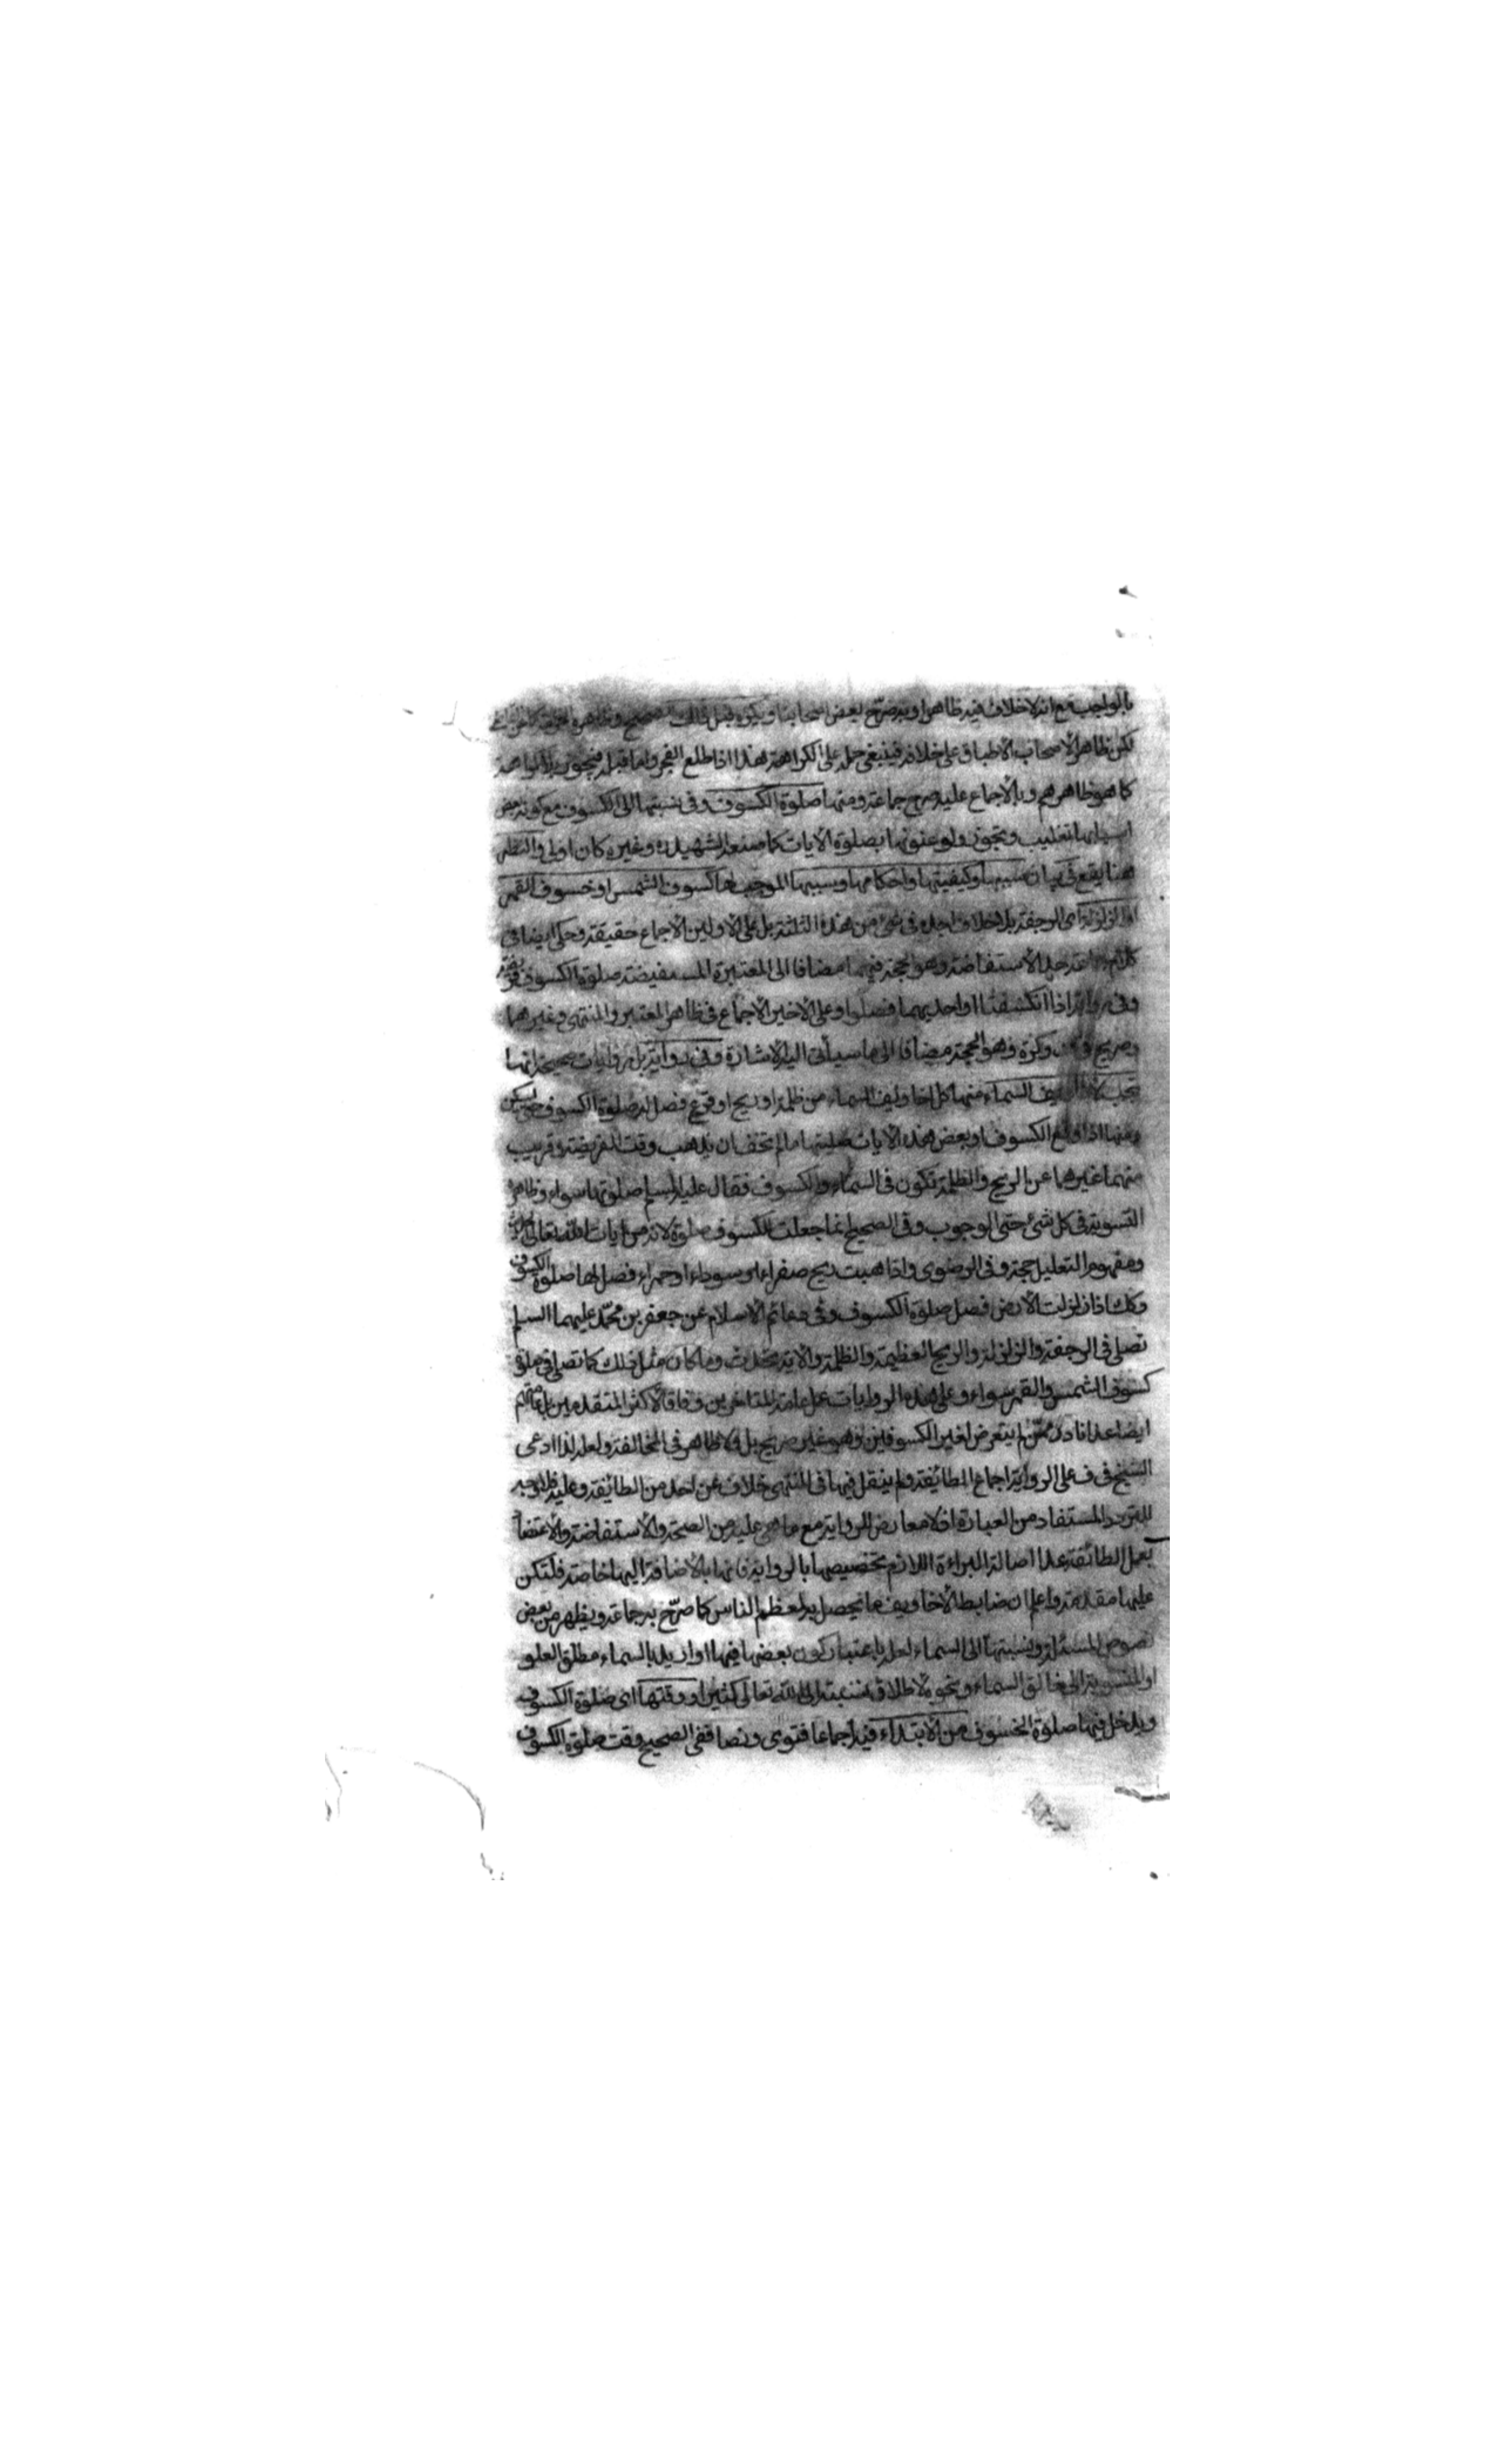 بالواجب مع انه لاخلاف فيه ظاهرا وبه صرّح بعض اصحابنا ويكره قبل ذلك
لكن ظاهر الاصحاب الاطباق على خلافه فينبغى حمله على الكراهة هذا اذا طلع الفجر واما قبله فيجوز بلا كراهة
كما هو ظاهرهم وبالاجماع عليه صرح جماعة ومنها صلوة الكسوف وفى نسبتها الى الكسوف مع كونه بعض
اسبابها تغليب وتجوز ولو عنونها بصلوة الايات كما صنعه الشهيد ره وغيره كان اولى والنظر
هنا يقع فى بيان سببها وكيفيتها واحكامها وسببها الموجب لها كسوف الشمس او خسوف القمر
او الزلزلة اى الرجفة بلا خلاف اجده فى شئ من هذه الثلثة بل على الاولين الاجماع حقيقة وحكى ايضا فى
كلام جماعة حد الاستفاضة وهو الحجة فيهما مضافا الى المعتبرة المستفيضة صلوة الكسوف فريضة
وفى رواية اذا انكسفتا او احديهما فصلوا وعلى الاخير الاجماع فى ظاهر المعتبر والمنتهى وغيرهما
وصريح وكره وهو الحجة مضافا الى ما سيأتى اليه الاشارة وفى رواية بل روايات صحيحة انها
تجب لاخاويف السماء منها كل اخاويف السماء من ظلمة او ريح او فزع فصل له صلوة الكسوف حتى يسكن
ومنها اذا وقع الكسوف او بعض هذه الايات صليتها ما لم تتخف ان يذهب وقت الفريضة وقريب
منهما غيرهما عن الريح والظلمة تكون فى السماء والكسوف فقال عليه السلم صلوتهما سواء وظاهره
التسوية فى كل شئ حتى الوجوب وفى الصحيح انما جعلت للكسوف صلوة لانه من ايات الله تعالى
ومفهوم التعليل حجة وفى الرضوى واذا هبت ريح صفراء او سوداء او حمراء فصل لها صلوة الكسوف
وكك اذا زلزلت الارض فصل صلوة الكسوف وفى دعائم الاسلام عن جعفر بن محمّد عليهما السلم
تصلى فى الرجفة والزلزلة والريح العظيمة والظلمة والاية تحدث وما كان مثل ذلك كما تصلى فى صلوة
كسوف الشمس والقمر سواء وعلى هذه الروايات عمل عامة المتاخرين وفاقا لاكثر المتقدمين بل عامتهم
ايضا عدا نادر ممّن لم يتعرض لغير الكسوفين وهو غير صريح بل ولا ظاهر فى المخالفة ولعله لذا ادعى
الشيخ فى ف على الرواية اجماع الطائفة ولم ينقل فيها فى المنتهى خلاف عن احد من الطائفة وعليه فلا وجه
للتردد المستفاد من العبارة اذ لا معارض للرواية مع ما هى عليه من الصحة والاستفاضة والاعتضاد
بعمل الطائفة عدا اصالة البراءة اللازم تخصيصها بالرواية فانها بالاضافة اليها خاصة فلتكن
عليها مقدمة واعلم ان ضابط الاخاويف ما يحصل به لمعظم الناس كما صرّح به جماعة ويظهر من بعض
نصوص المسئلة ونسبتها الى السماء لعله باعتبار كون بعضها فيها او اريد بالسماء مطلق العلو
او المنسوبة الى خالق السماء ونحوه لاطلاق نسبته الى الله تعالى كثيرا ووقتها اى صلوة الكسوف
ويدخل فيها صلوة الخسوف من الابتداء فيه اجماعا فتوى ونصا ففى الصحيح وقت صلوة الكسوف